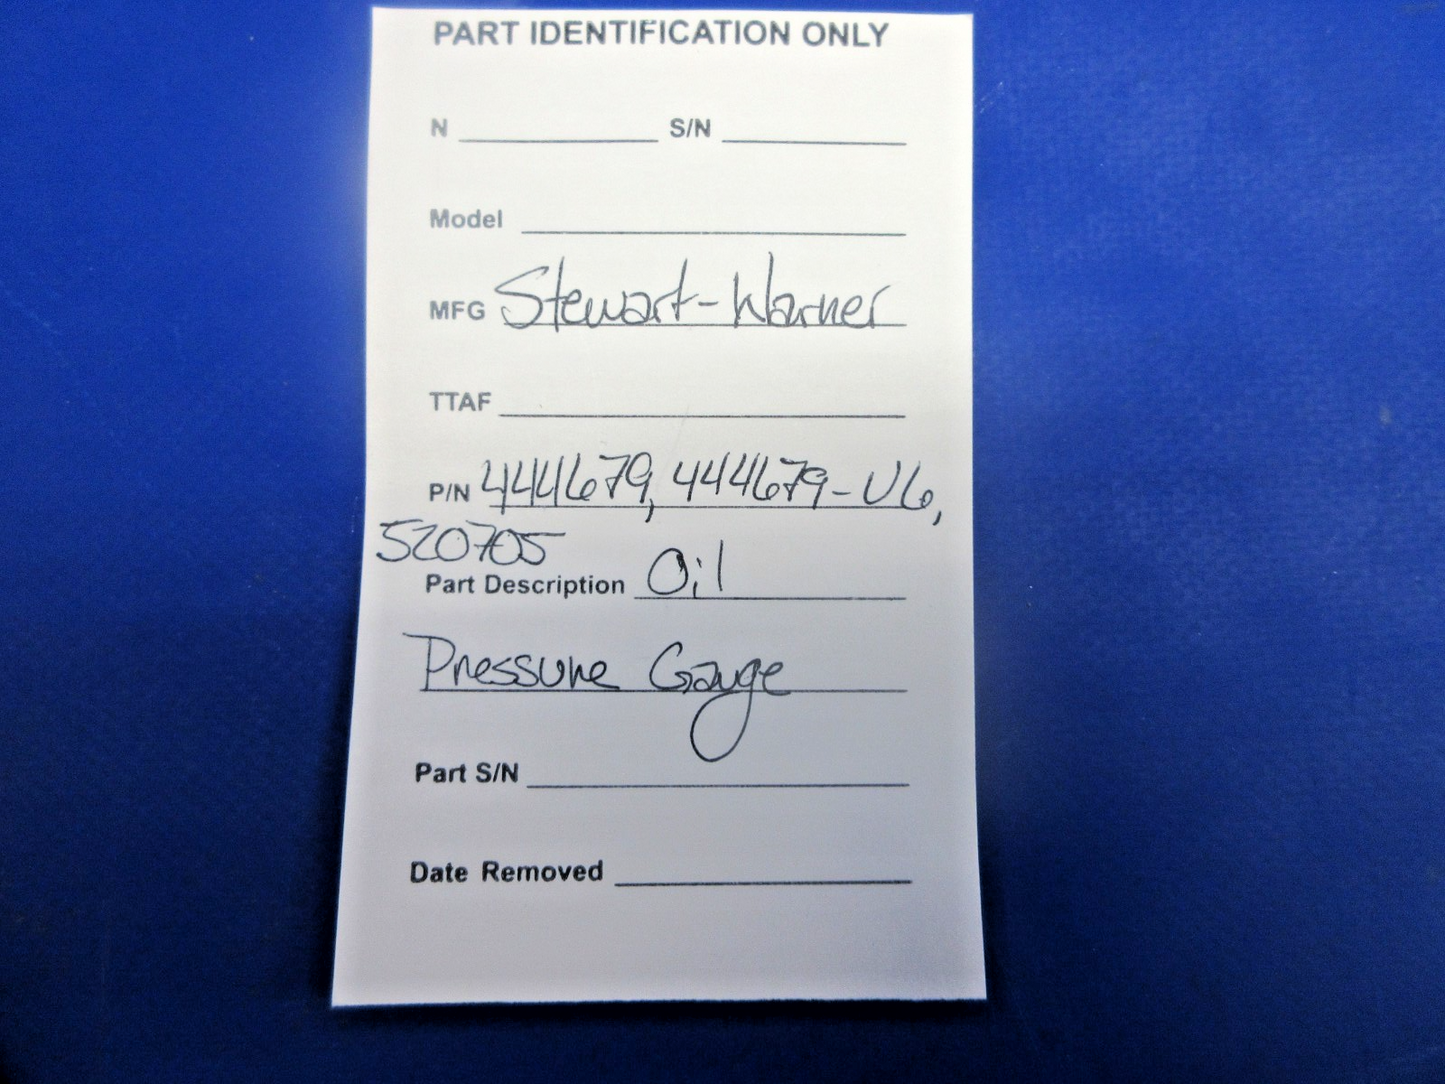 PART IDENTIFICATION ONLY
N ________ S/N ________
Model ________
MFG Stewart-Warner
TTAF ________
P/N 444679, 444679-U6,
520705
Part Description Oil
Pressure Gauge
Part S/N ________
Date Removed ________